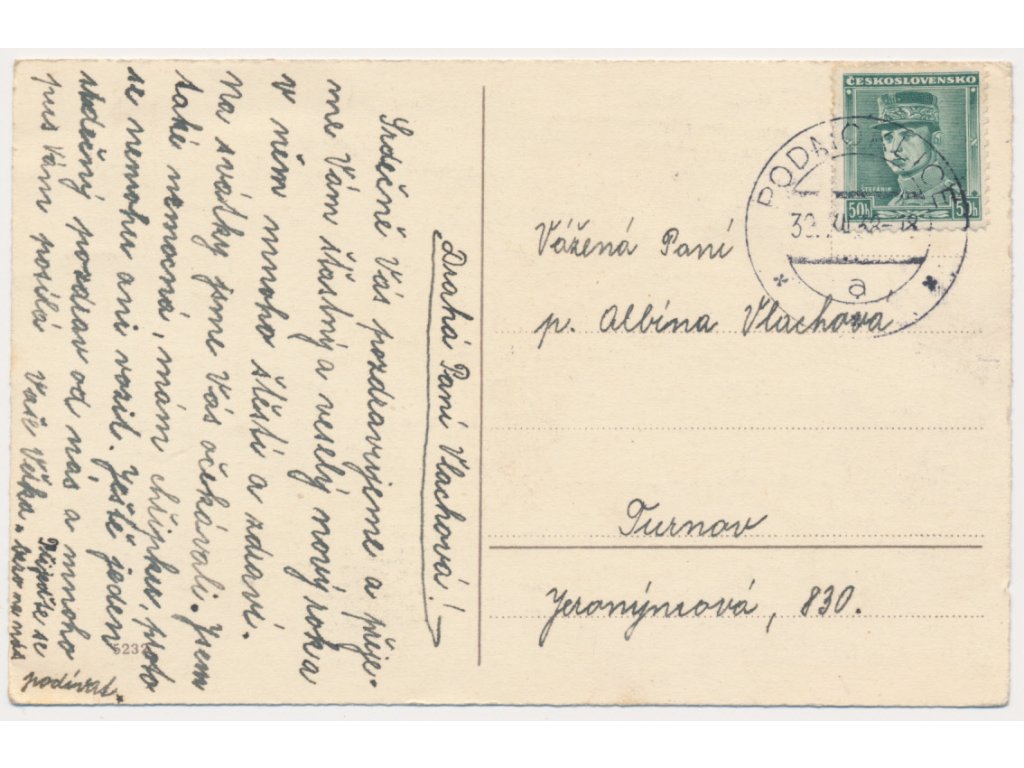 Drahá Paní Vlachová!
Srdečně Vás pozdravujeme a přeje-
me Vám šťastný a veselý nový rok a
v něm mnoho štěstí a zdaví.
Na svátky jsme Vás očekávali. Jsem
také nemocná, mám chřipku, proto
se nemohu ani vozit. Ještě jeden
srdečný pozdrav od nás a mnoho
pus Vám posílá Vaše Věka.
Přijeďte se
na nás
podívat.
5232
ČESKOSLOVENSKO
ŠTEFÁNIK
50h 50h
30. XII 38-18
a
Vážená Paní
p. Albína Vlachová
Turnov
Jeronýmová, 830.